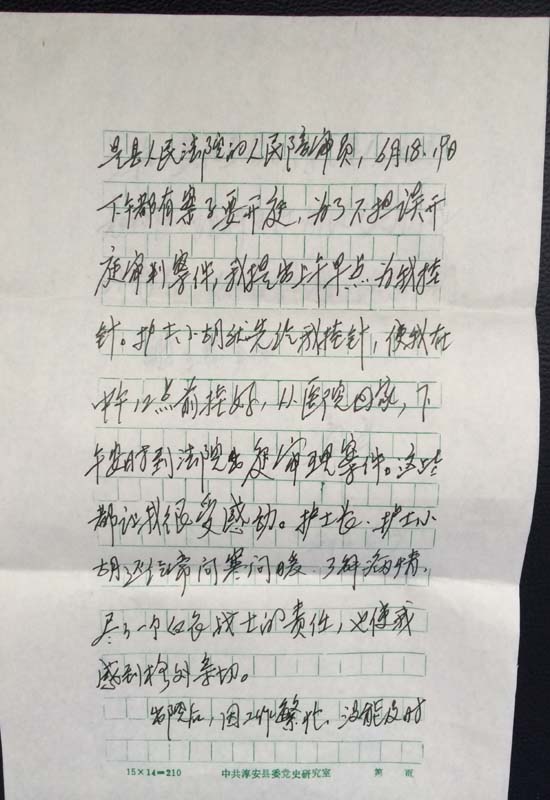 是县人民法院的人民陪审员，6月18、19日
下午都有案子要开庭，为了不担误开
庭审判案件，我提出上午早点为我挂
针。护士小胡就先给我挂针，使我在
中午12点前挂好，从医院回家，下
午安时到法院出庭审理案件。这些
都让我很受感动。护士长、护士小
胡还经常问寒问暖，了解病情，
尽了一个白衣战士的责任，也使我
感到格外亲切。
出院后，因工作繁忙，没能及时
15×14=210 中共淳安县委党史研究室 第 页